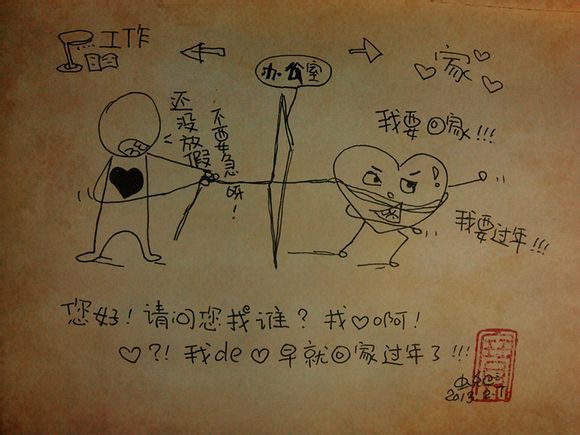 工作
家
办公室
还没放假
不要急呀!
我要回家!!!
我要过年!!!
您好!请问您找谁?找♡啊!
♡?!我de♡早就回家过年了!!!
2013.2.7